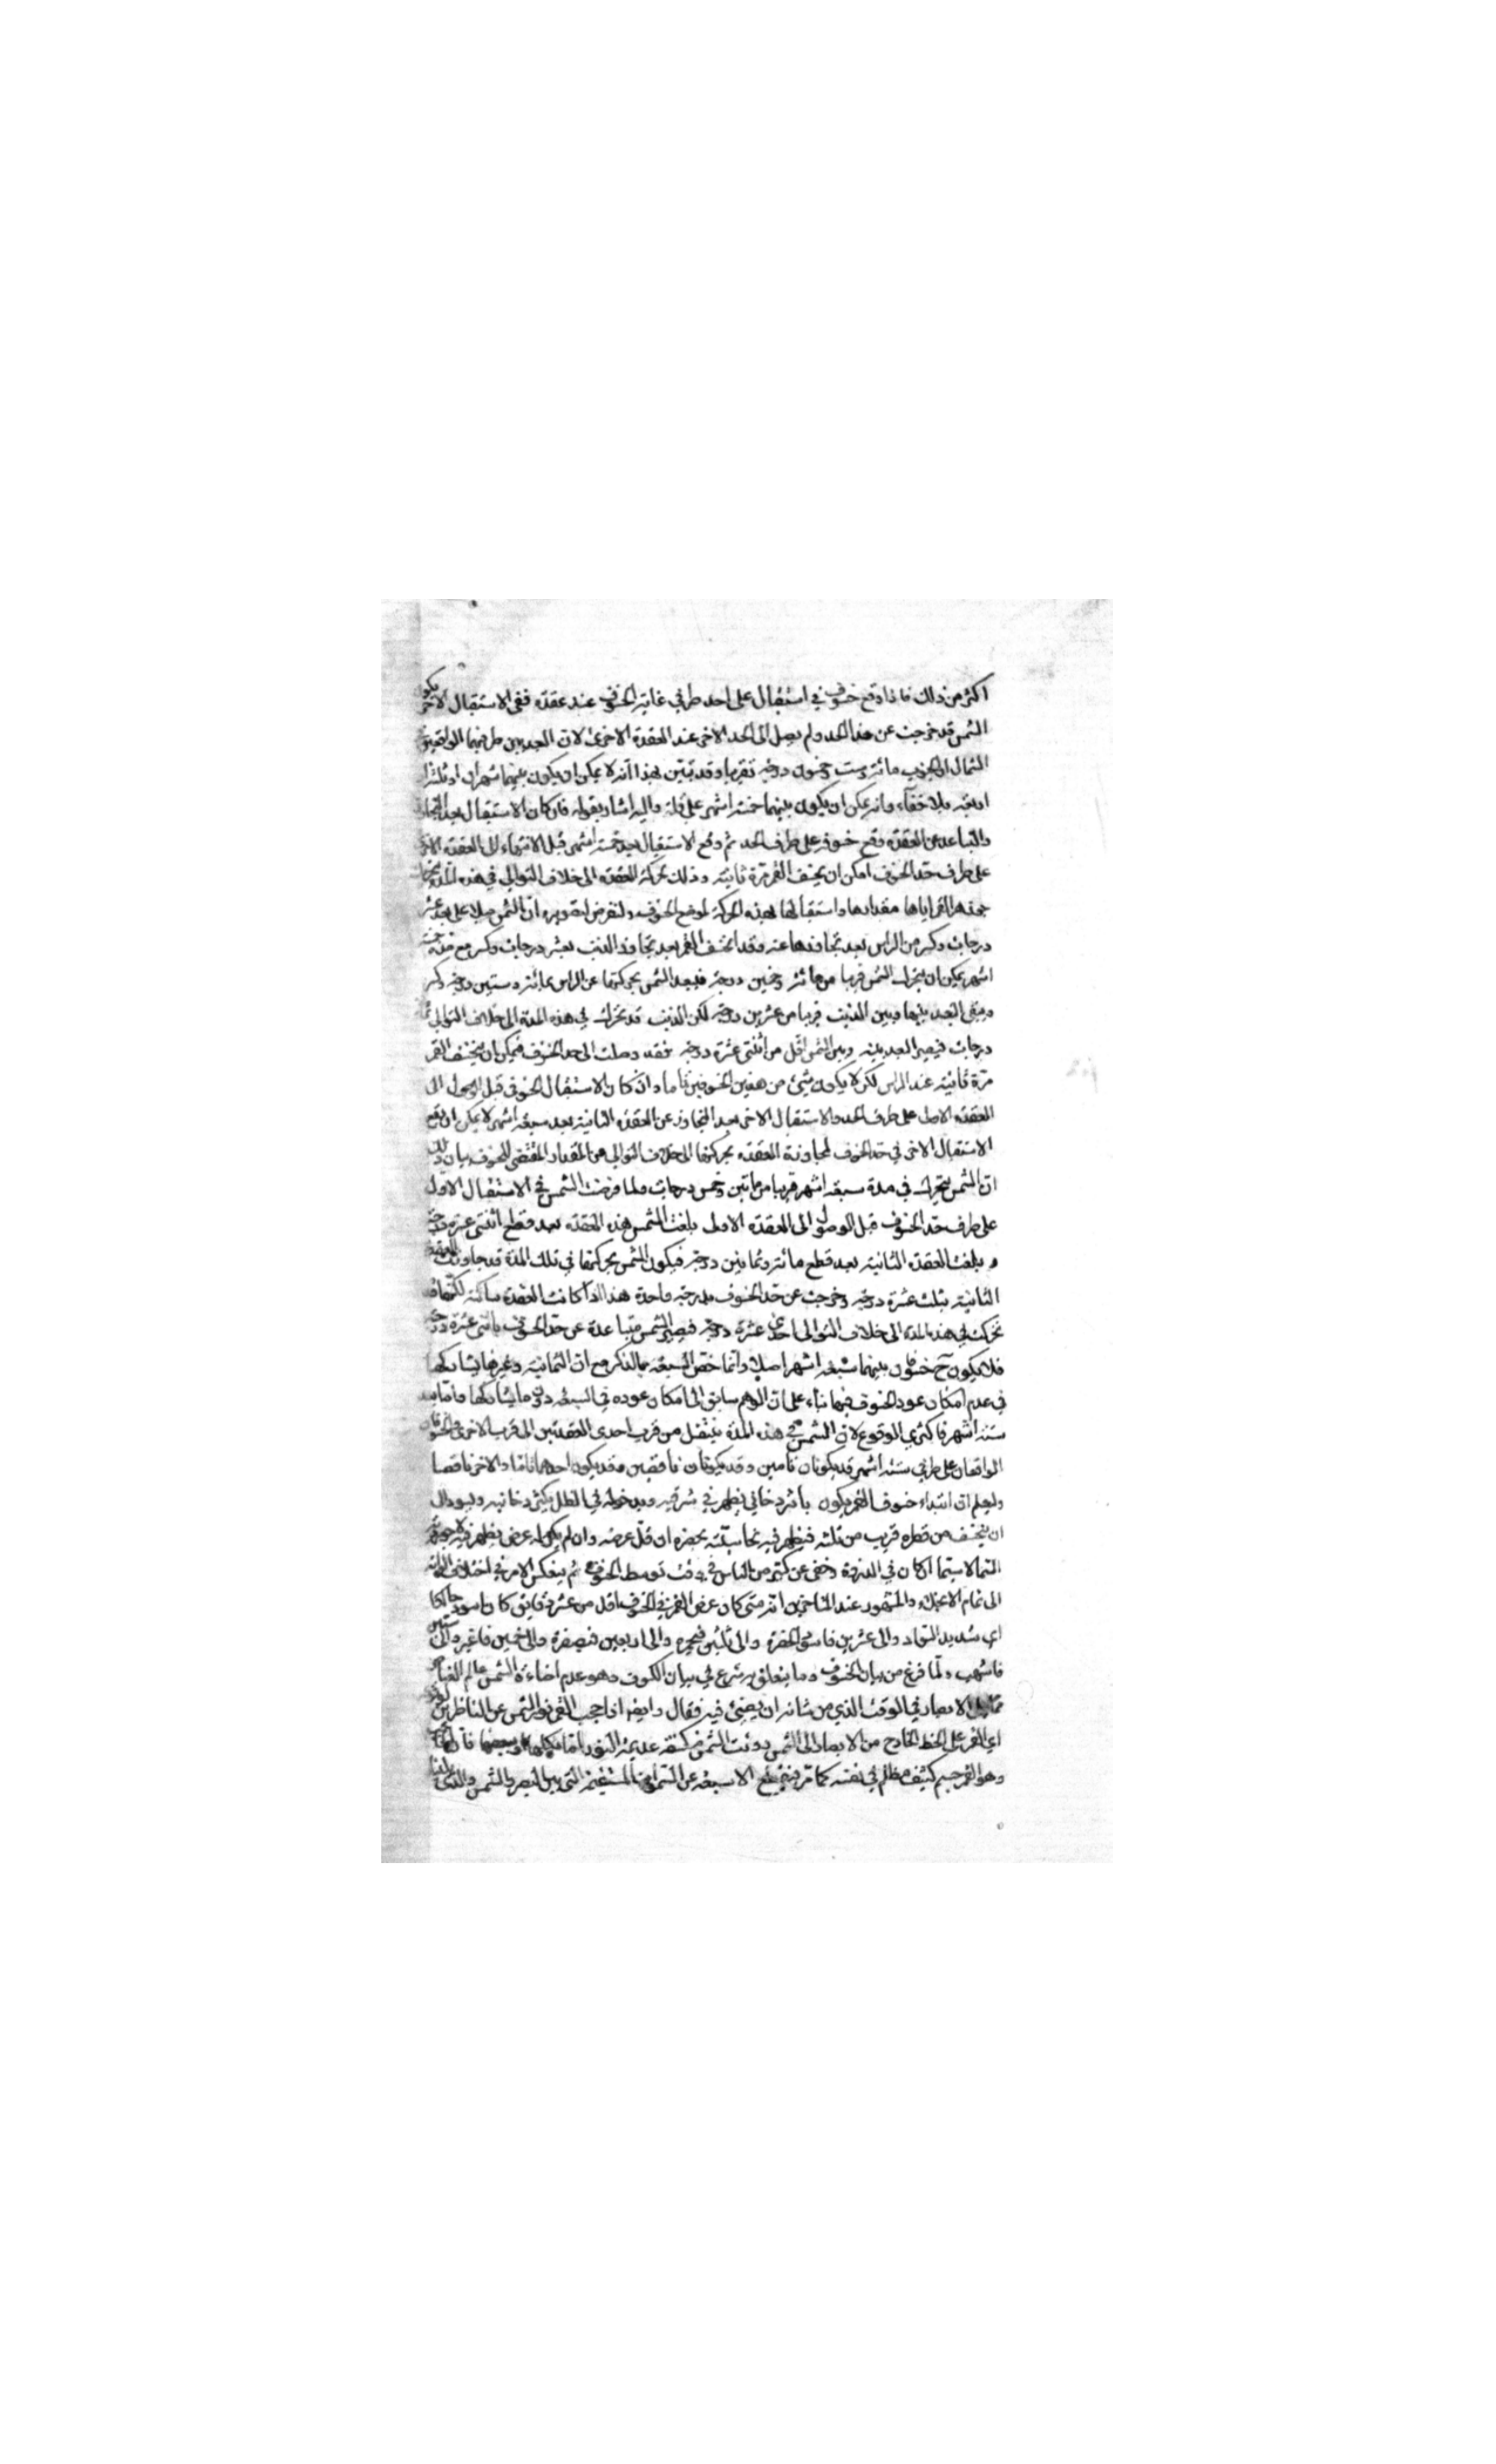 اكثر من ذلك فاذا وقع خسوف في استقبال على احد طرفي غاية الخسوف عند عقدة ففي الاستقبال الاخر يكون
الشمس قد خرجت عن هذا الحد ولم يصل الى الحد الاخر عند العقدة الاخرى لان البعد بين طرفيهما الواقعين
الشمال الى الجنوب مائة وست وخمسون درجة تقريبا وقد تبين بهذا انه لا يمكن ان يكون بينهما شهران او ثلثة او
اربعة بلا خفآء وانه يمكن ان يكون بينهما خمسة اشهر على قلة واليه اشار بقوله فان كان الاستقبال بعد التجاوز
والتباعد عن العقدة وقع خسوفه على طرف الحد ثم وقع الاستقبال بعد خمسة اشهر قبل الانتهاء الى العقدة الاخرى
على طرف حد الخسوف امكن ان يخسف القمر مرة ثانية وذلك لحركة العقدة الى خلاف التوالي في هذه المدة
واستقبالها بهذه الحركة لموضع الخسوف ولنفرض لتصويره ان الشمس مثلا على بعد عشر
درجات وكسر من الراس بعد تجاوزها عنه وقد انخسف القمر بعد تجاوز الذنب بعشر درجات وكسر مع خمسة
اشهر يمكن ان يتحرك الشمس قريبا من مائة وخمسين درجة فبعد الشمس بحركتها عن الراس بمائة وستين درجة وكسر
ويبقى البعد بينها وبين الذنب قريبا من عشرين درجة لكن الذنب قد تحرك في هذه المدة الى خلاف التوالي
درجات فيصير البعد بينه وبين الشمس اقل من اثنتي عشرة درجة فقد وصلت الى حد الخسوف فيمكن ان ينخسف القمر
مرة ثانية عند الراس لكن لا يكون شيء من هذين الخسوفين تاما واذ كان الاستقبال الخسوفي قبل الوصول الى
العقدة الاولى على طرف الحد والاستقبال الاخر بعد التجاوز عن العقدة الثانية بعد سبعة اشهر لا يمكن ان يقع
الاستقبال الاخر في حد الخسوف لمجاوزة العقدة بحركتها الى خلاف التوالي عن المقدار المقتضى للخسوف بيان ذلك
ان الشمس يتحرك في مدة سبعة اشهر قريبا من مائتين وخمس درجات ولما فرضت الشمس في الاستقبال الاول
على طرف حد الخسوف قبل الوصول الى العقدة الاولى بلغت الشمس هذه العقدة بعد قطع اثنتي عشرة درجة
و بلغت العقدة الثانية بعد قطع مائة وثمانين درجة فيكون الشمس بحركتها في تلك المدة قد جاوزت العقدة
الثانية بثلث عشرة درجة وخرجت عن حد الخسوف بدرجة واحدة هذا اذا كانت العقدة ساكنة لكنها قد
تحركت في هذه المدة الى خلاف التوالي احدى عشرة درجة فيصير الشمس متباعدة عن حد الخسوف باثنتي عشرة درجة
فلا يكون ح خسوفان بينهما سبعة اشهر اصلا وانما خص السبعة بالذكر مع ان الثمانية وغيرها يشاركها
في عدم امكان عود الخسوف فيها بناء على ان الوهم سابق الى امكان عوده في السبعة دون ما يشاركها واما بعد
ستة اشهر فاكثري الوقوع لان الشمس في هذه المدة ينتقل من قرب احدى العقدتين الى قرب الاخرى والخسوفان
الواقعان على طرفي ستة اشهر قد يكونان تامين وقد يكونان ناقصين وقد يكون احدهما تاما والاخر ناقصا
وليعلم ان ابتداء خسوف القمر يكون باثر دخاني يظهر في شرقيه وبدخوله في الظل يكثر دخانيه ويسود الى
ان ينخسف من قطره قريب من ثلثه فيظهر فيه نحاسية بحمرة ان قل عرضه وان لم يكن له عرض يظهر فيه
التمالاسيما ان كان في الذروة وخفي عن كثير من الناس في وقت توسط الخسوف ثم ينعكس الامر في اختلاف الوانه
الى تمام الانجلاء والمشهور عند المتاخرين انه متى كان عرض القمر في الخسوف اقل من عشر دقايق كان اسود حالكا
اي شديد السواد والى عشرين فاسود بخضرة والى ثلثين فبحمرة والى اربعين فبصفرة والى خمسين فاغبر والى ستين
فاشهب ولما فرغ من بيان الخسوف وما يتعلق به شرع في بيان الكسوف وهو عدم اضاءة الشمس عالم
الابصار في الوقت الذي من شانه ان يضيء فيه فقال وايضا اذا حجب القمر نور الشمس عن الناظرين
اي القمر على الخط الخارج من الابصار الى الشمس رؤيت الشمس منكسفة عديمة النور اما كلها او بعضها
وهو القمر جسم كثيف مظلم في نفسه كما مر فيقطع الاشعة عن التي بين البصر والشمس